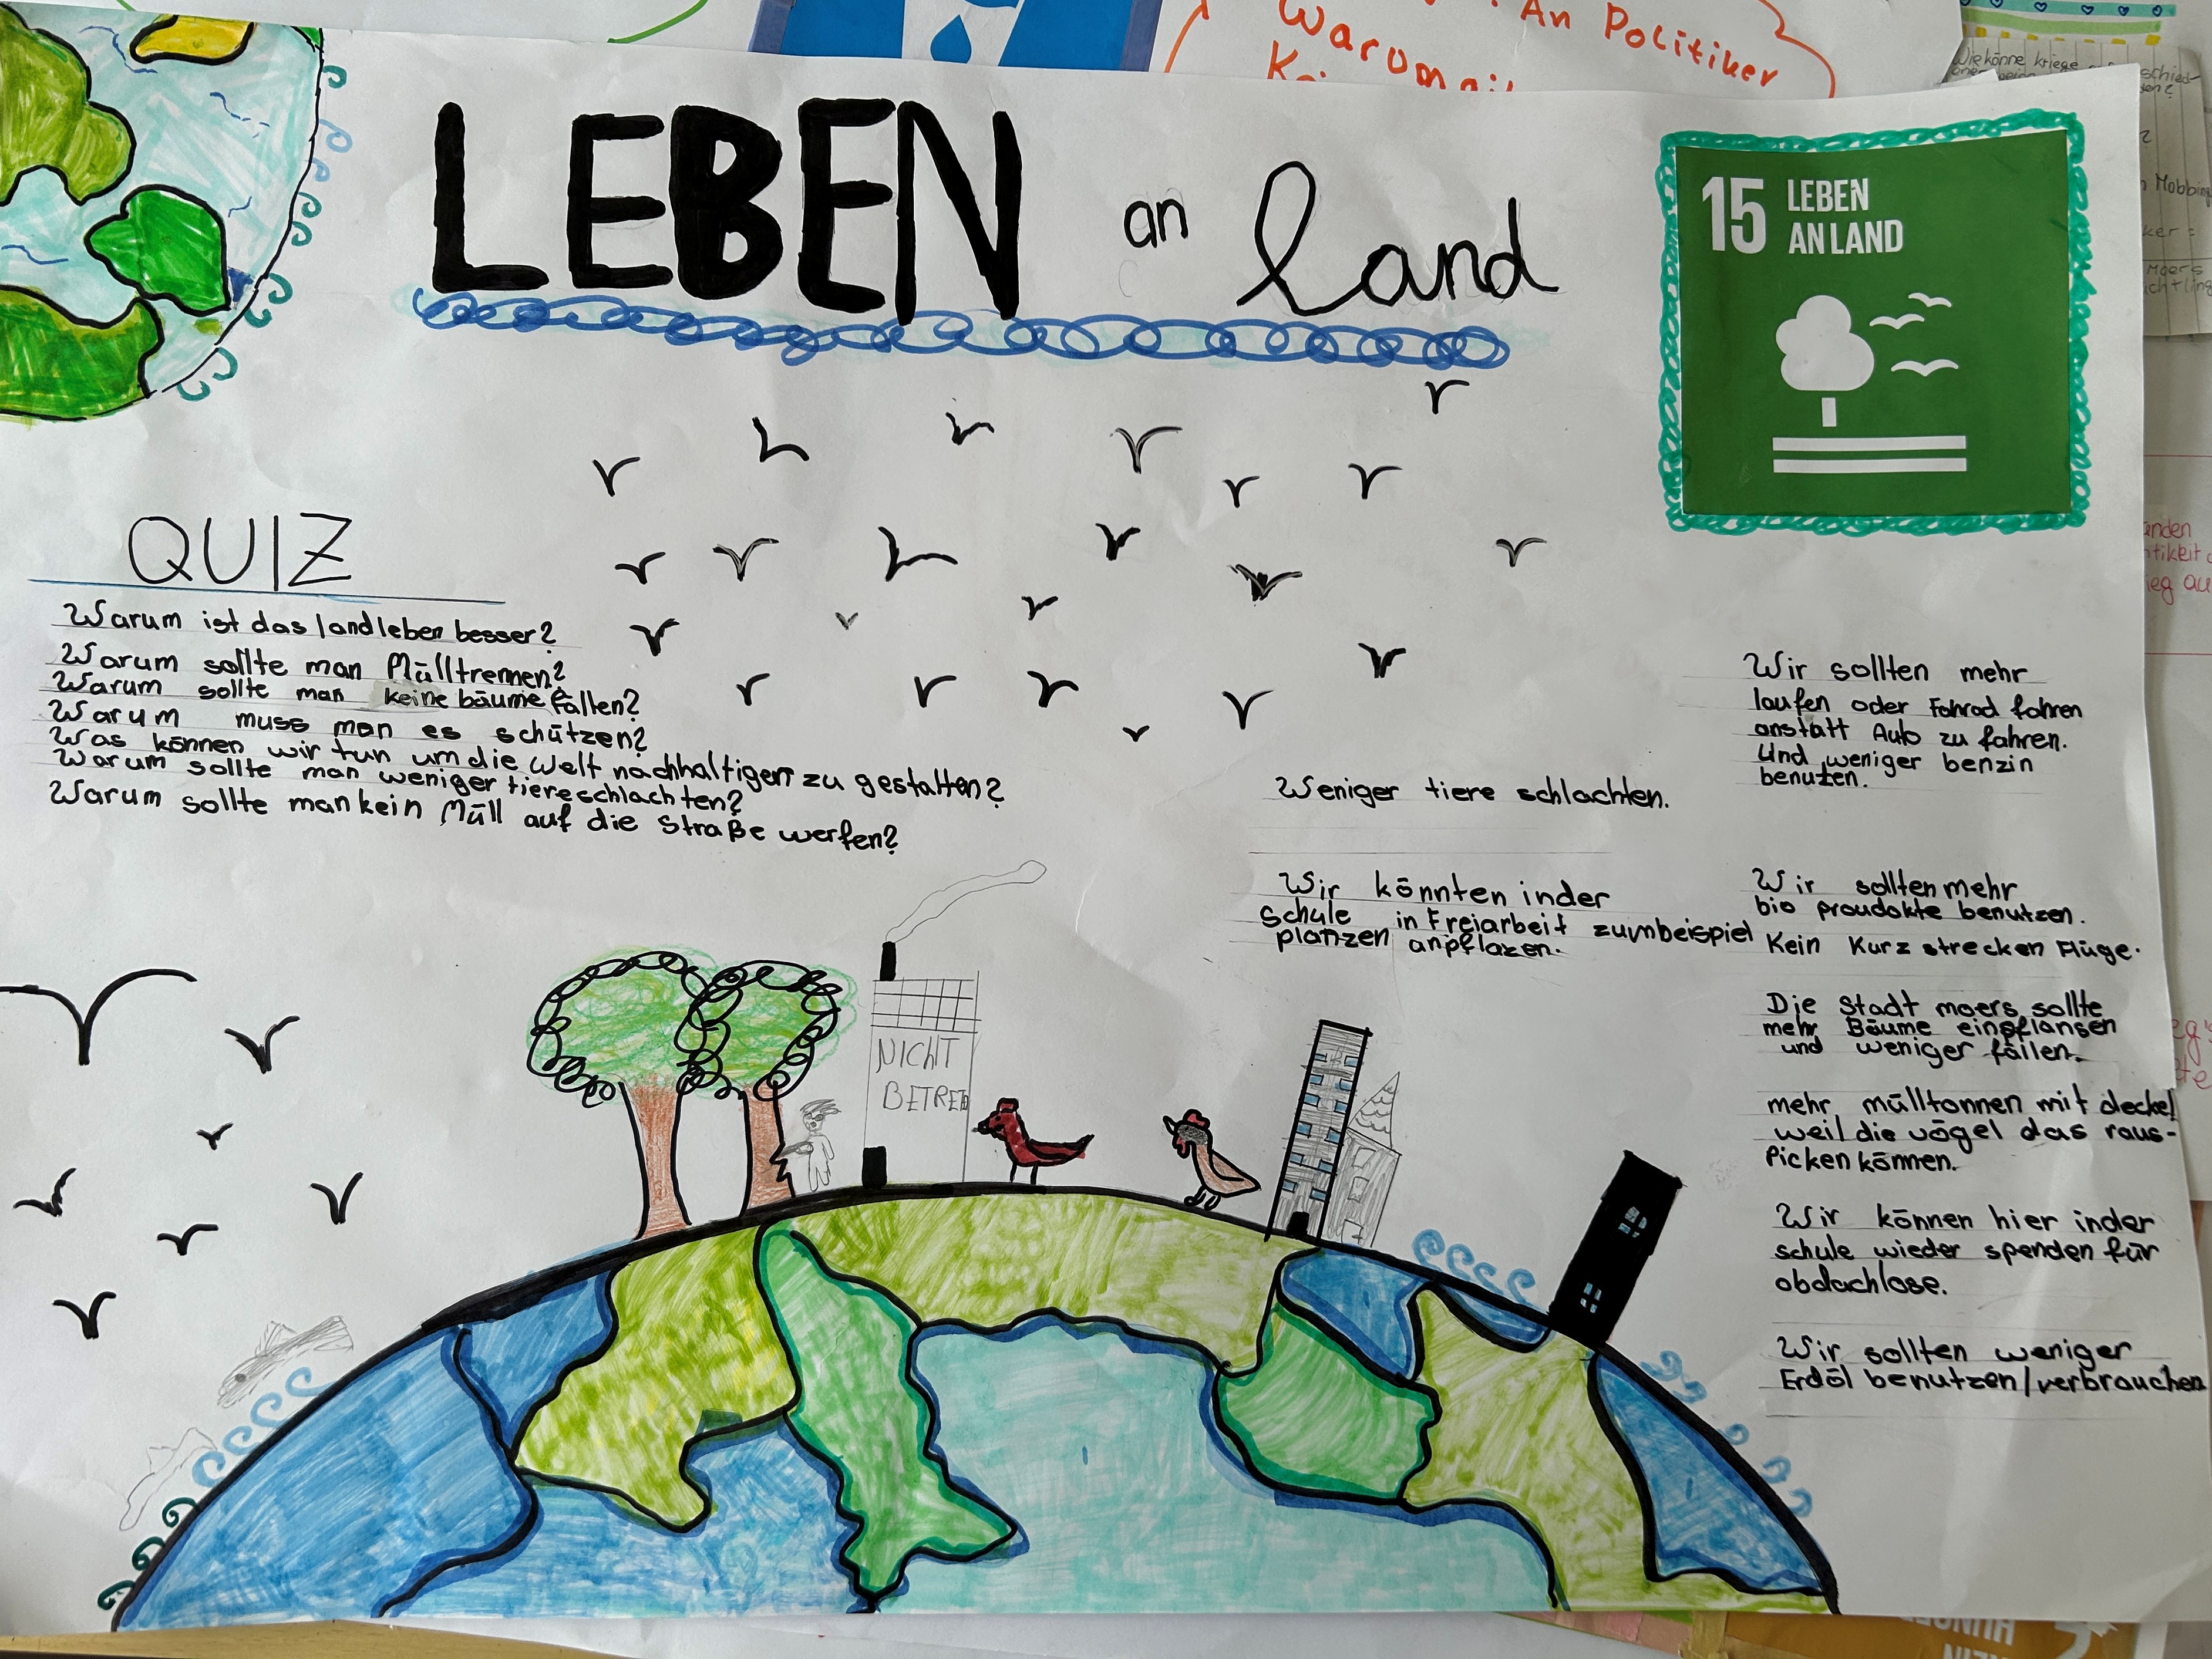 An Politiker
Warum
LEBEN an land
15 LEBEN
AN LAND
QUIZ
Warum ist das landleben besser?
Warum sollte man Mülltrennen?
Warum sollte man keine bäume fällen?
Warum muss man es schützen?
Was können wir tun um die Welt nachhaltigerr zu gestalten?
Warum sollte man weniger tiere schlachten?
Warum sollte man kein Müll auf die Straße werfen?
Weniger tiere schlachten.
Wir könnten inder
schule in Freiarbeit zumbeispiel
planzen anpflazen.
Wir sollten mehr
laufen oder Fahrad fahren
anstatt Auto zu fahren.
Und weniger benzin
benutzen.
Wir sollten mehr
bio proudakte benutzen.
Kein Kurz strecken Flüge.
Die Stadt moers sollte
mehr Bäume einpflansen
und weniger fällen.
mehr mülltonnen mit deckel
weil die vögel das raus-
Picken können.
Wir können hier inder
schule wieder spenden für
obdachlose.
Wir sollten weniger
Erdöl benutzen/verbrauchen
NICHT
BETRET